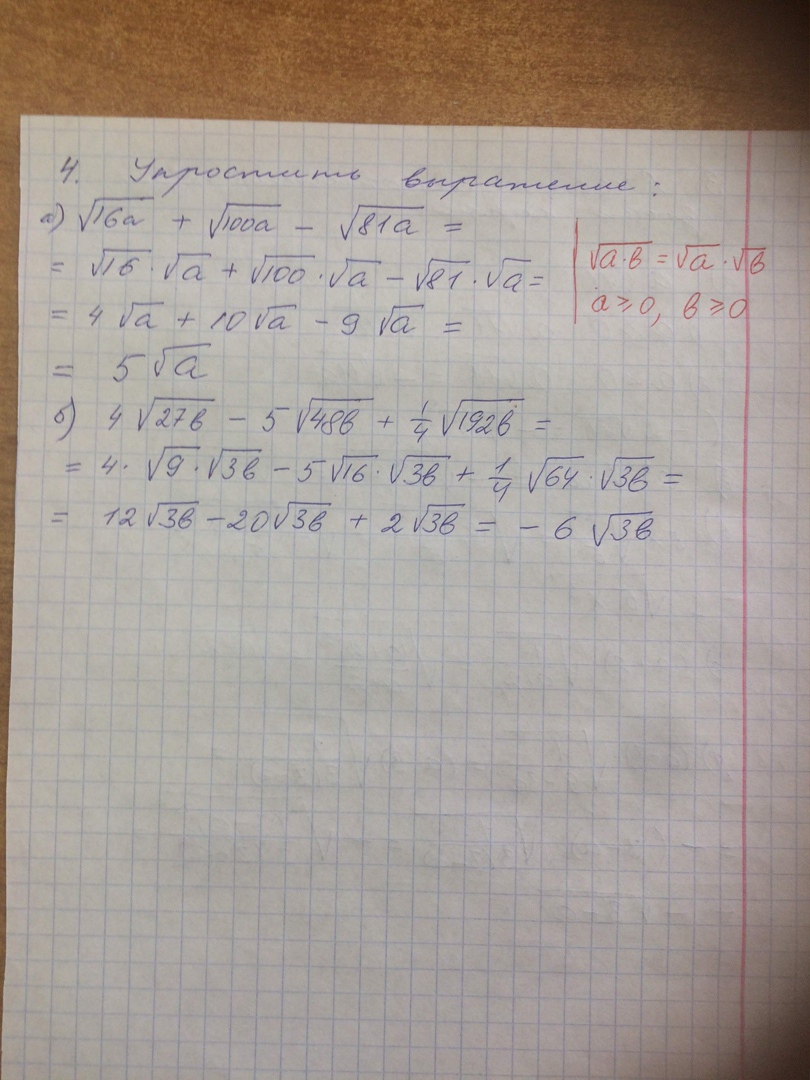 4. Упростить выражение:
а) √16a + √100a − √81a =
= √16 · √a + √100 · √a − √81 · √a =
= 4 √a + 10 √a − 9 √a =
= 5 √a
√a·в = √a · √в
a ≥ 0, в ≥ 0
б) 4 √27в − 5 √48в + 1/4 √192в =
= 4 · √9 · √3в − 5 √16 · √3в + 1/4 √64 · √3в =
= 12 √3в − 20 √3в + 2 √3в = − 6 √3в